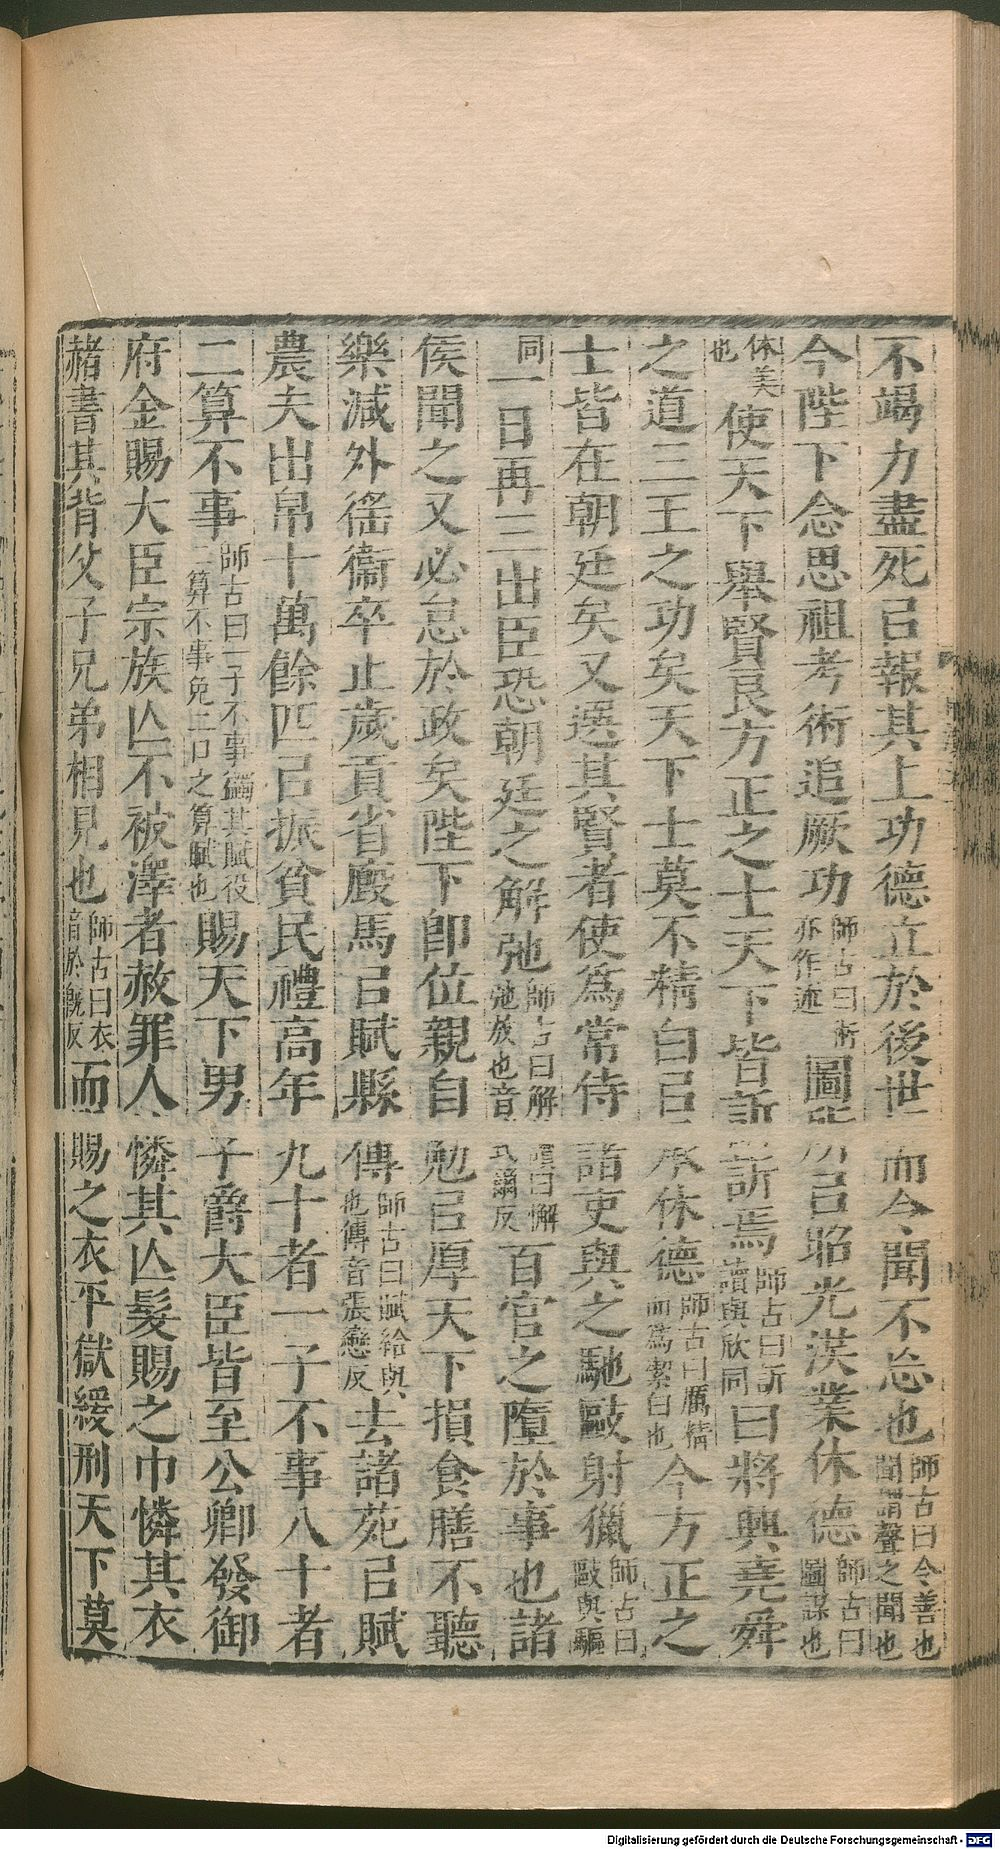 不竭力盡死㠯報其上功德立於後世而令聞不忘也師古曰令善也聞謂聲之聞也
今陛下念思祖考術追厥功師古曰術亦作述圖所㠯昭光洪業休德師古曰圖謀也
休美也使天下舉賢良方正之士天下皆訢訢焉師古曰訢讀與欣同曰將興堯舜
之道三王之功矣天下士莫不精白㠯承休德師古曰厲精而為絜白也今方正之
士皆在朝廷矣又選其賢者使為常侍諸吏與之馳敺射獵師古曰敺與驅
同一日再三出臣恐朝廷之解弛師古曰解讀曰懈弛放也音式爾反百官之墮於事也諸
侯聞之又必怠於政矣陛下即位親自勉㠯厚天下損食膳不聽
樂減外徭衞卒止歲貢省廄馬㠯賦縣傳師古曰賦給與也傳音張戀反去諸苑㠯賦
農夫出帛十萬餘匹㠯振貧民禮高年九十者一子不事八十者
二算不事師古曰一子不事蠲其賦役二算不事免二口之算賦也賜天下男子爵大臣皆至公卿發御
府金賜大臣宗族亾不被澤者赦罪人憐其亾髮賜之巾憐其衣
赭書其背父子兄弟相見也師古曰衣音於旣反而賜之衣平獄緩刑天下莫
Digitalisierung gefördert durch die Deutsche Forschungsgemeinschaft - DFG